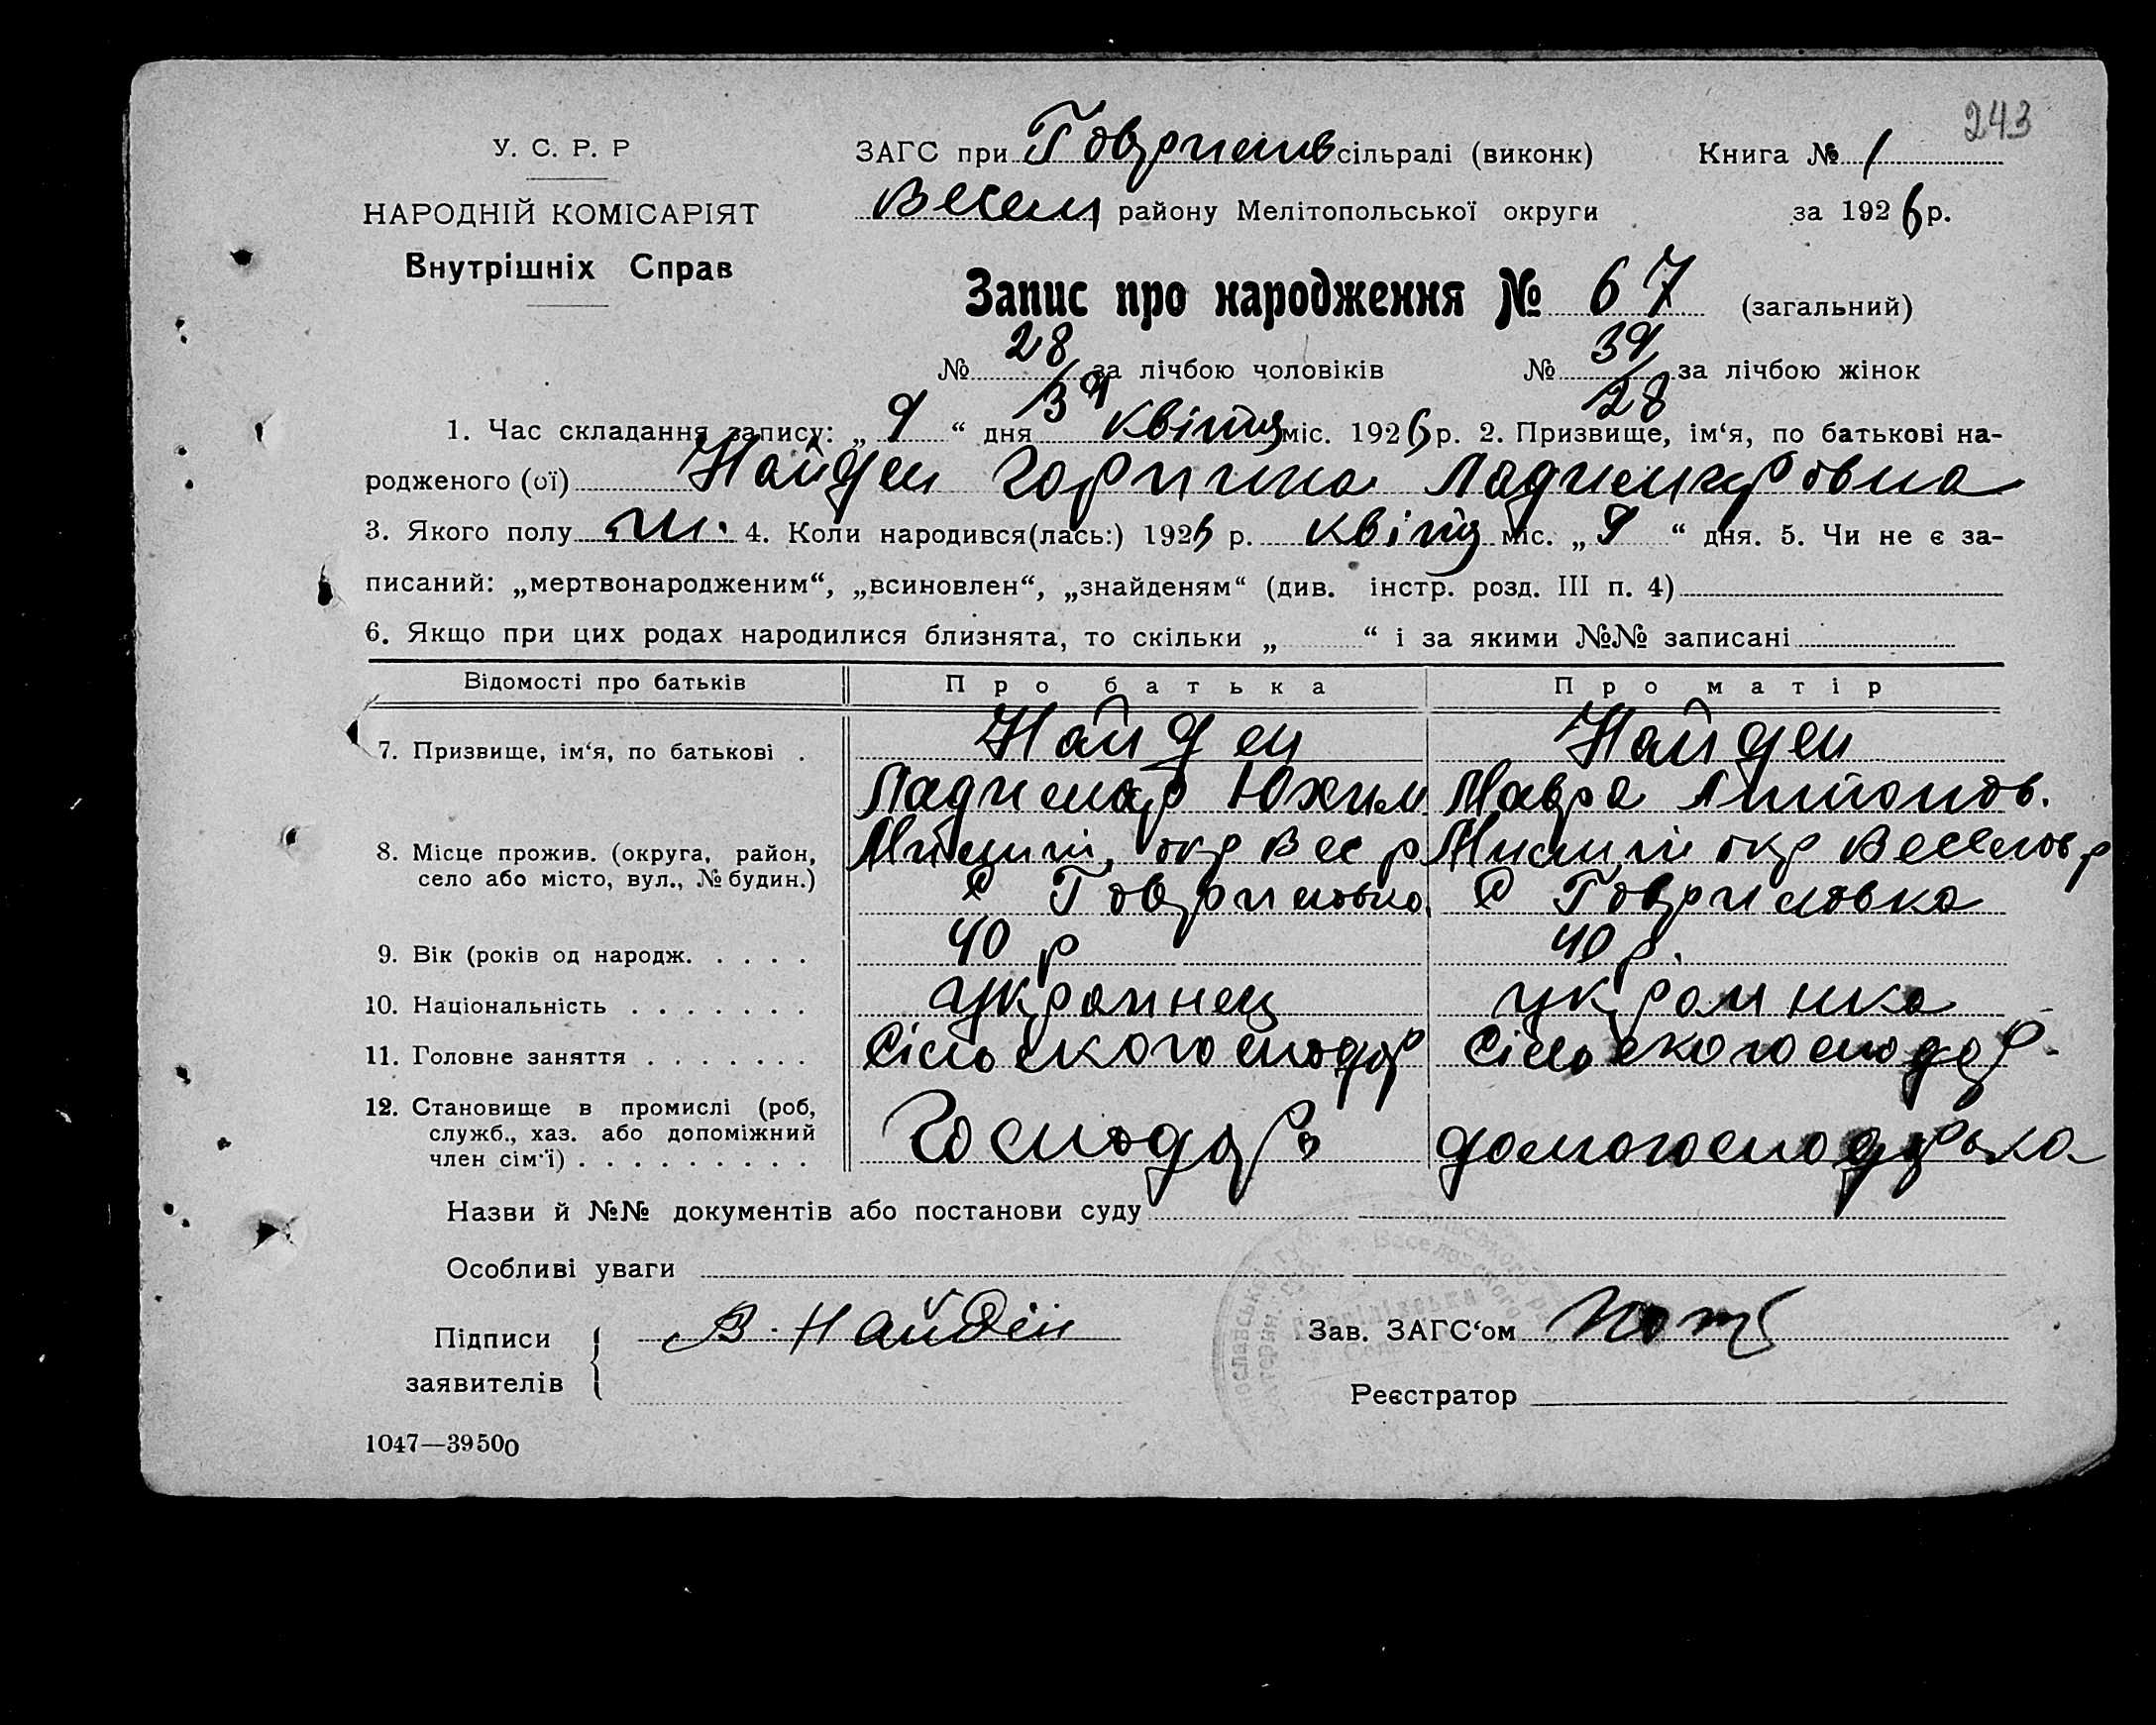 243
У. С. Р. Р
НАРОДНІЙ КОМІСАРІЯТ
Внутрішніх Справ
ЗАГС при Гаврилив сільраді (виконк)
Весел району Мелітопольської округи
Книга № 1
за 1926 р.
Запис про народження № 67 (загальний)
№ 28 за лічбою чоловіків № 39 за лічбою жінок
39 28
1. Час складання запису: „ 9 “ дня квітця міс. 1926 р. 2. Призвище, ім‘я, по батькові на-
родженого (ої) Найден Горпина Ладимировна
3. Якого полу 4. Коли народився(лась:) 1926 р. квітця міс. „ 9 “ дня. 5. Чи не є за-
писаний: „мертвонародженим“, „всиновлен“, „знайденям“ (див. інстр. розд. III п. 4)
6. Якщо при цих родах народилися близнята, то скільки „ “ і за якими №№ записані
Відомості про батьків Про батька Про матір
7. Призвище, ім‘я, по батькові . Найден Найден
Ладимар Юхим Мавра Антонов.
8. Місце прожив. (округа, район, окр Вес р окр Веселов р
село або місто, вул., № будин.) с Гавриловка с Гавриловка
9. Вік (років од народж. . . . . 40 р 40 р.
10. Національність . . . . . . . украинец украинка
11. Головне заняття . . . . . . . Сільскогосподар Сільскогосподар.
12. Становище в промислі (роб, Господарь домогосподарька
служб., хаз. або допоміжний
член сім‘ї) . . . . . . . . .
Назви й №№ документів або постанови суду
Особливі уваги
Підписи
заявителів
В. Найдін
Зав. ЗАГС‘ом
Реєстратор
1047—39500